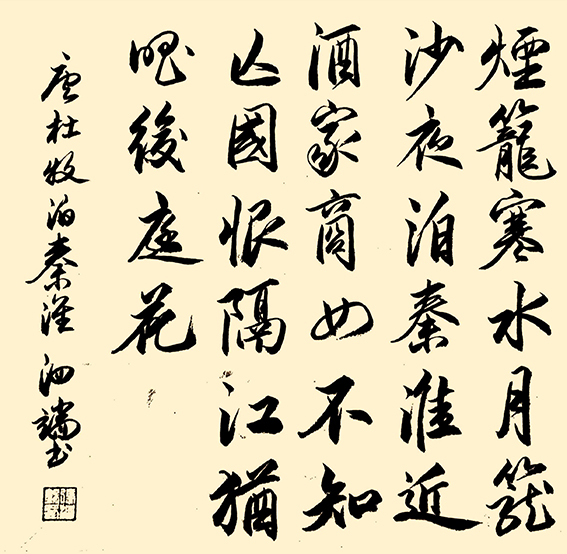 煙籠寒水月籠
沙夜泊秦淮近
酒家商女不知
亡國恨隔江猶
唱後庭花
唐杜牧泊秦淮 泗端书